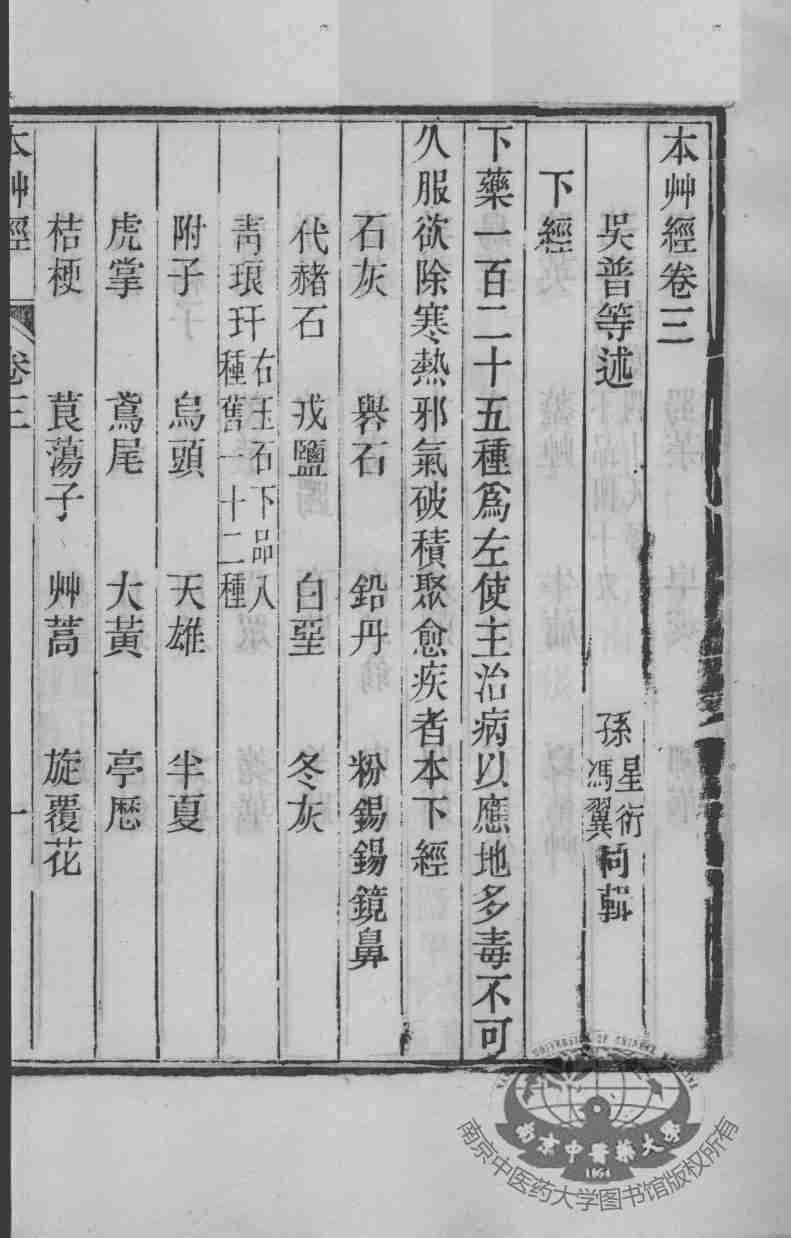 本艸經卷三
吳普等述 孫星衍馮翼同輯
下經
下藥一百二十五種爲左使主治病以應地多毒不可
久服欲除寒熱邪氣破積聚愈疾者本下經
石灰 礜石 鉛丹 粉錫錫鏡鼻
代赭石 戎鹽 白堊 冬灰
靑琅玕 右玉石下品八種舊一十二種
附子 烏頭 天雄 半夏
虎掌 鳶尾 大黃 亭歷
桔梗 莨蕩子 艸蒿 旋覆花
本艸經 卷三 一
南京中醫藥大學
1954
南京中医药大学图书馆版权所有